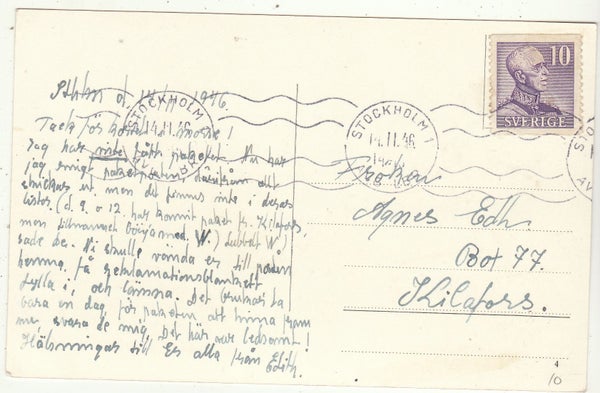 Sthlm d. 14/11 1946.
Tack för kortet i morse!
Jag har inte fått paketet. Nu har
jag ringt
ut men det finnes inte i deras
listor. (d. 9 o 12 har kommit paket fr. Kilafors,
men tillnamnet börja med W.)
sade de. Ni skulle vända er till
få reklamationsblankett
fylla i, och lämna. Det brukar ta
bara en dag för paketen att hinna fram
svara de mig. Det här var ledsamt!
Hälsningar till Er alla från Edith.
STOCKHOLM 1
14.11.46
STOCKHOLM 1
14.11.46
10
SVERIGE
Fröken
Agnes Edh.
Box 77.
Kilafors.
4
10